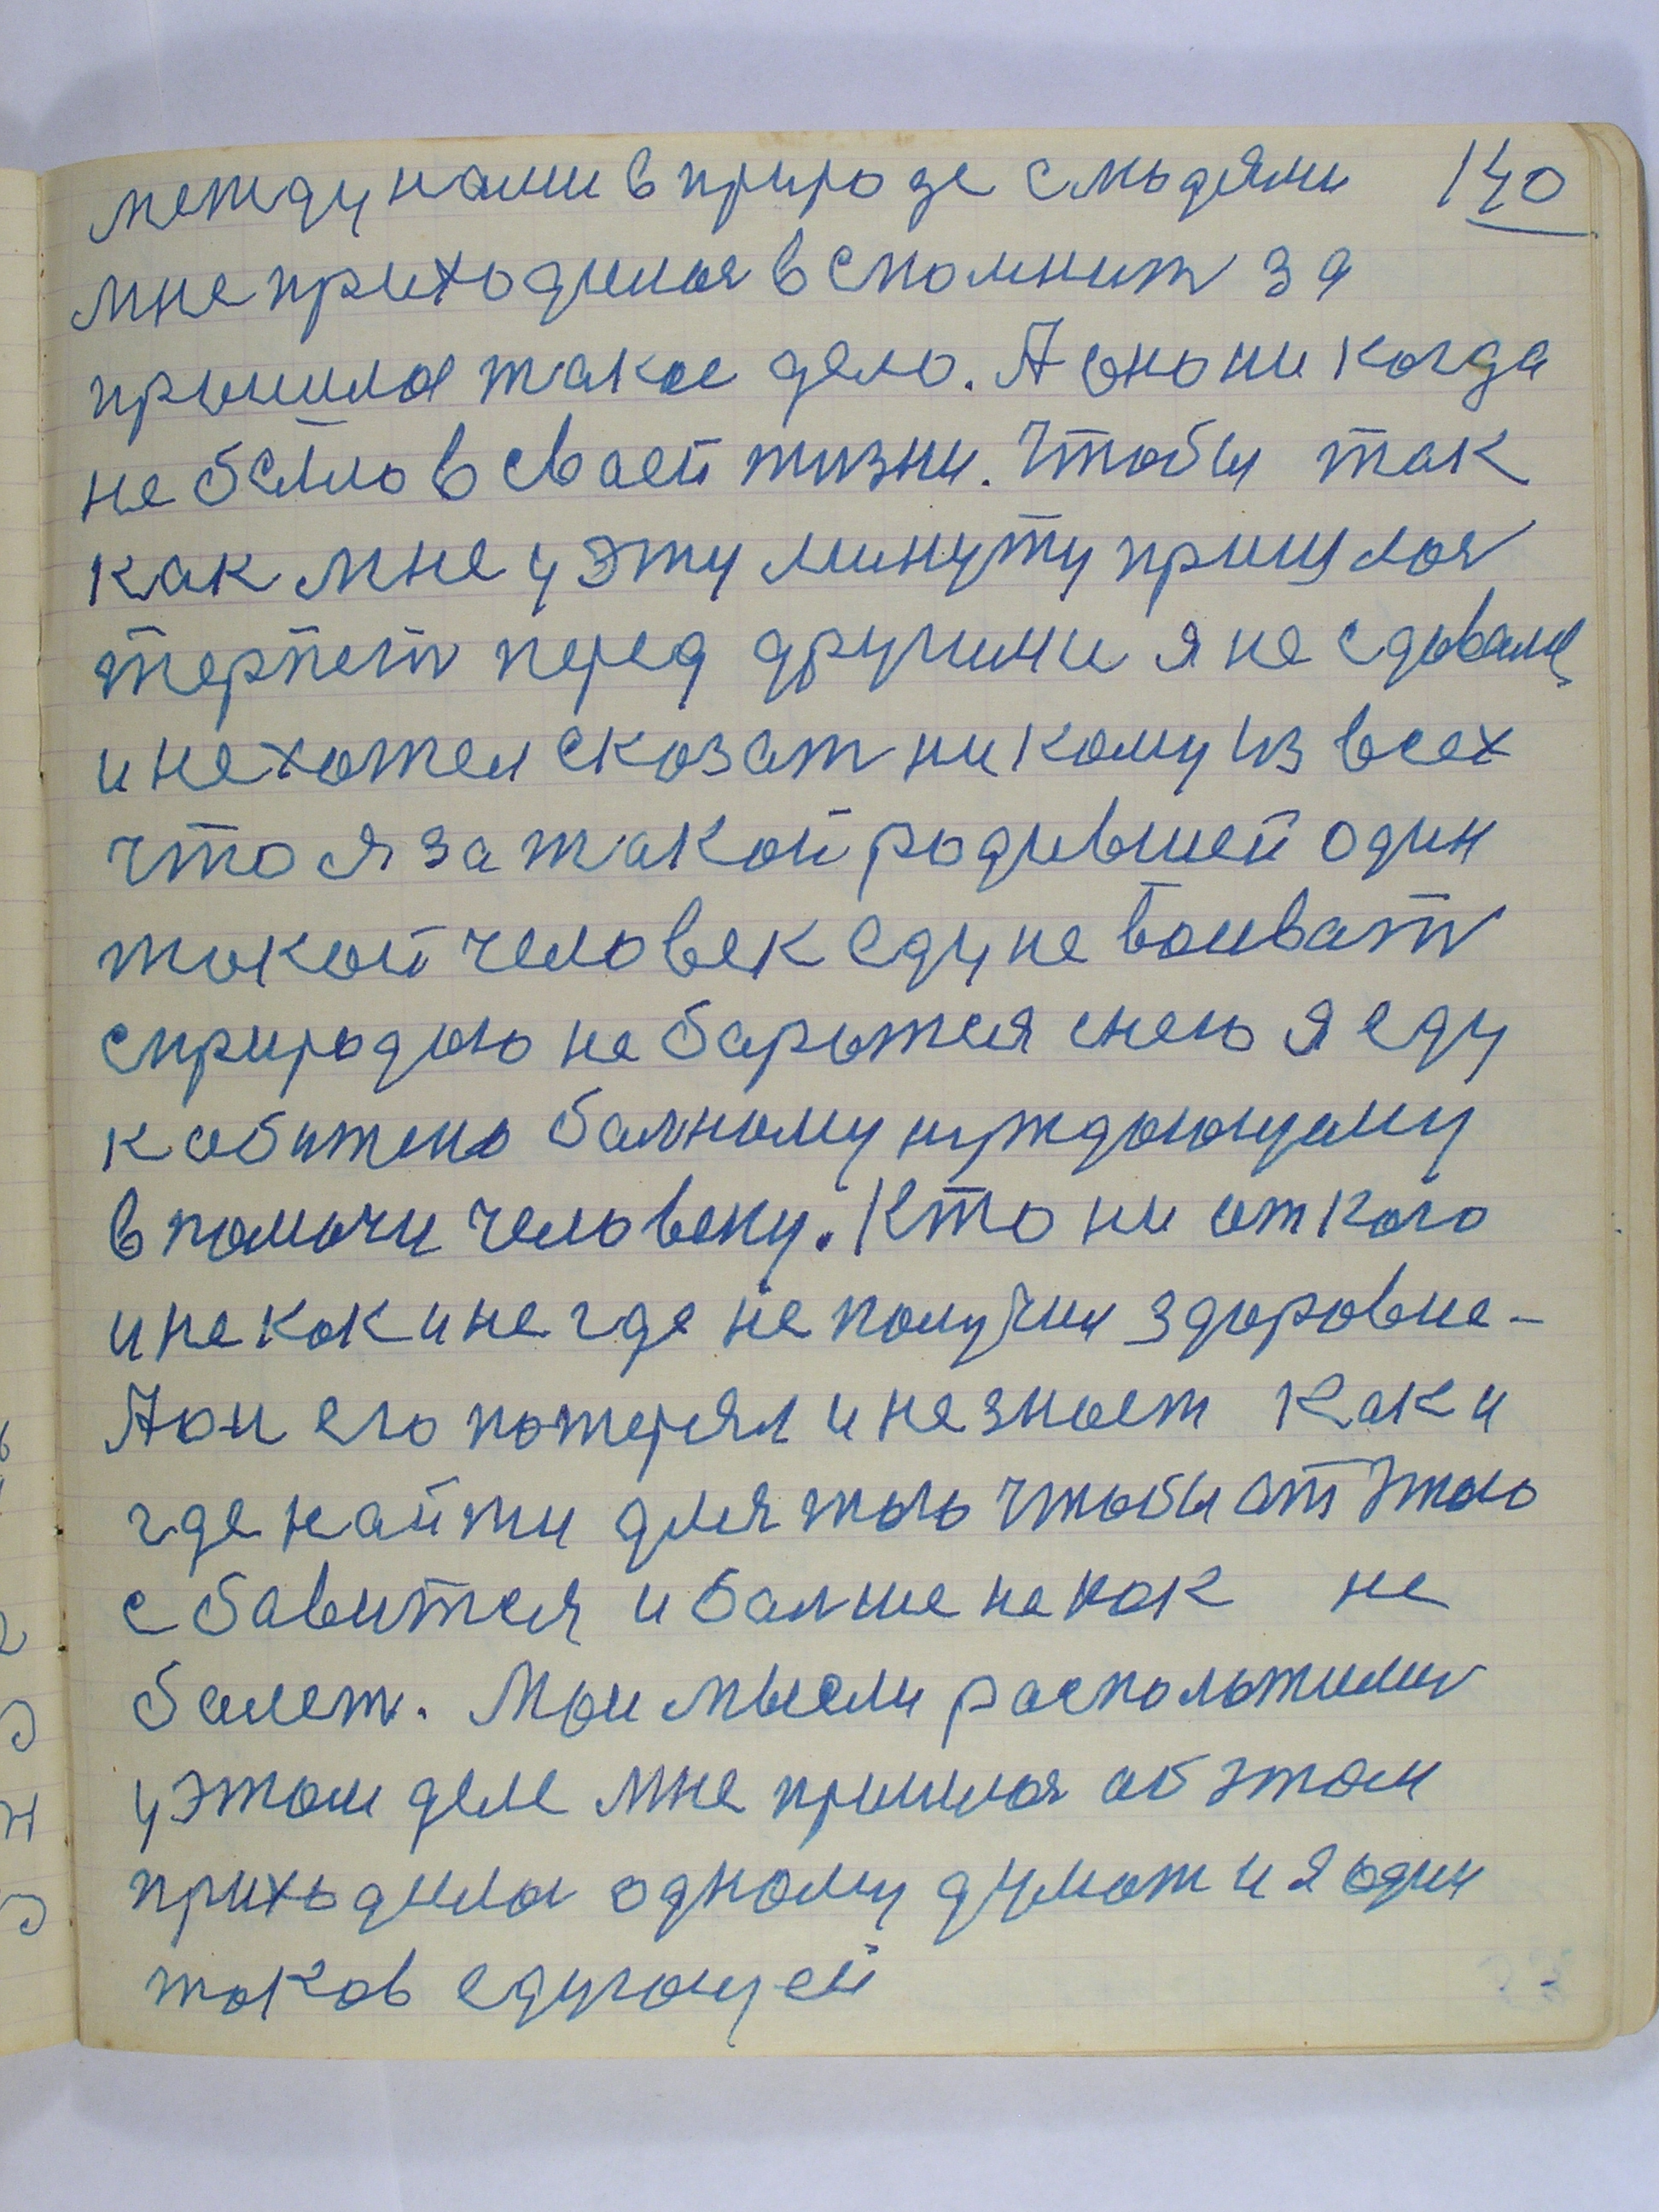 между нами в природе с людями 140
мне приходилося вспомнит за
пришлое такое дело. А оно ни когда
не было в своей жизни. Чтобы так
как мне у эту минуту пришлося
терпеть перед другими я не сдавался
и не хотел сказат ни кому из всех
что я за такой родившей один
такой человек еду не воивать
с природою не баротся с нею я еду
к обитено балному нуждающуму
в помочи человеку. Кто ни от кого
и не как и не где не получил здоровие-
А он его потерял и не знает как и
где найти для того чтобы от этого
сбавится и балше не как не
балеть. Мои мысли расположилис
у этом деле мне пришлося об этом
приходило одному думат и я один
таков едущей